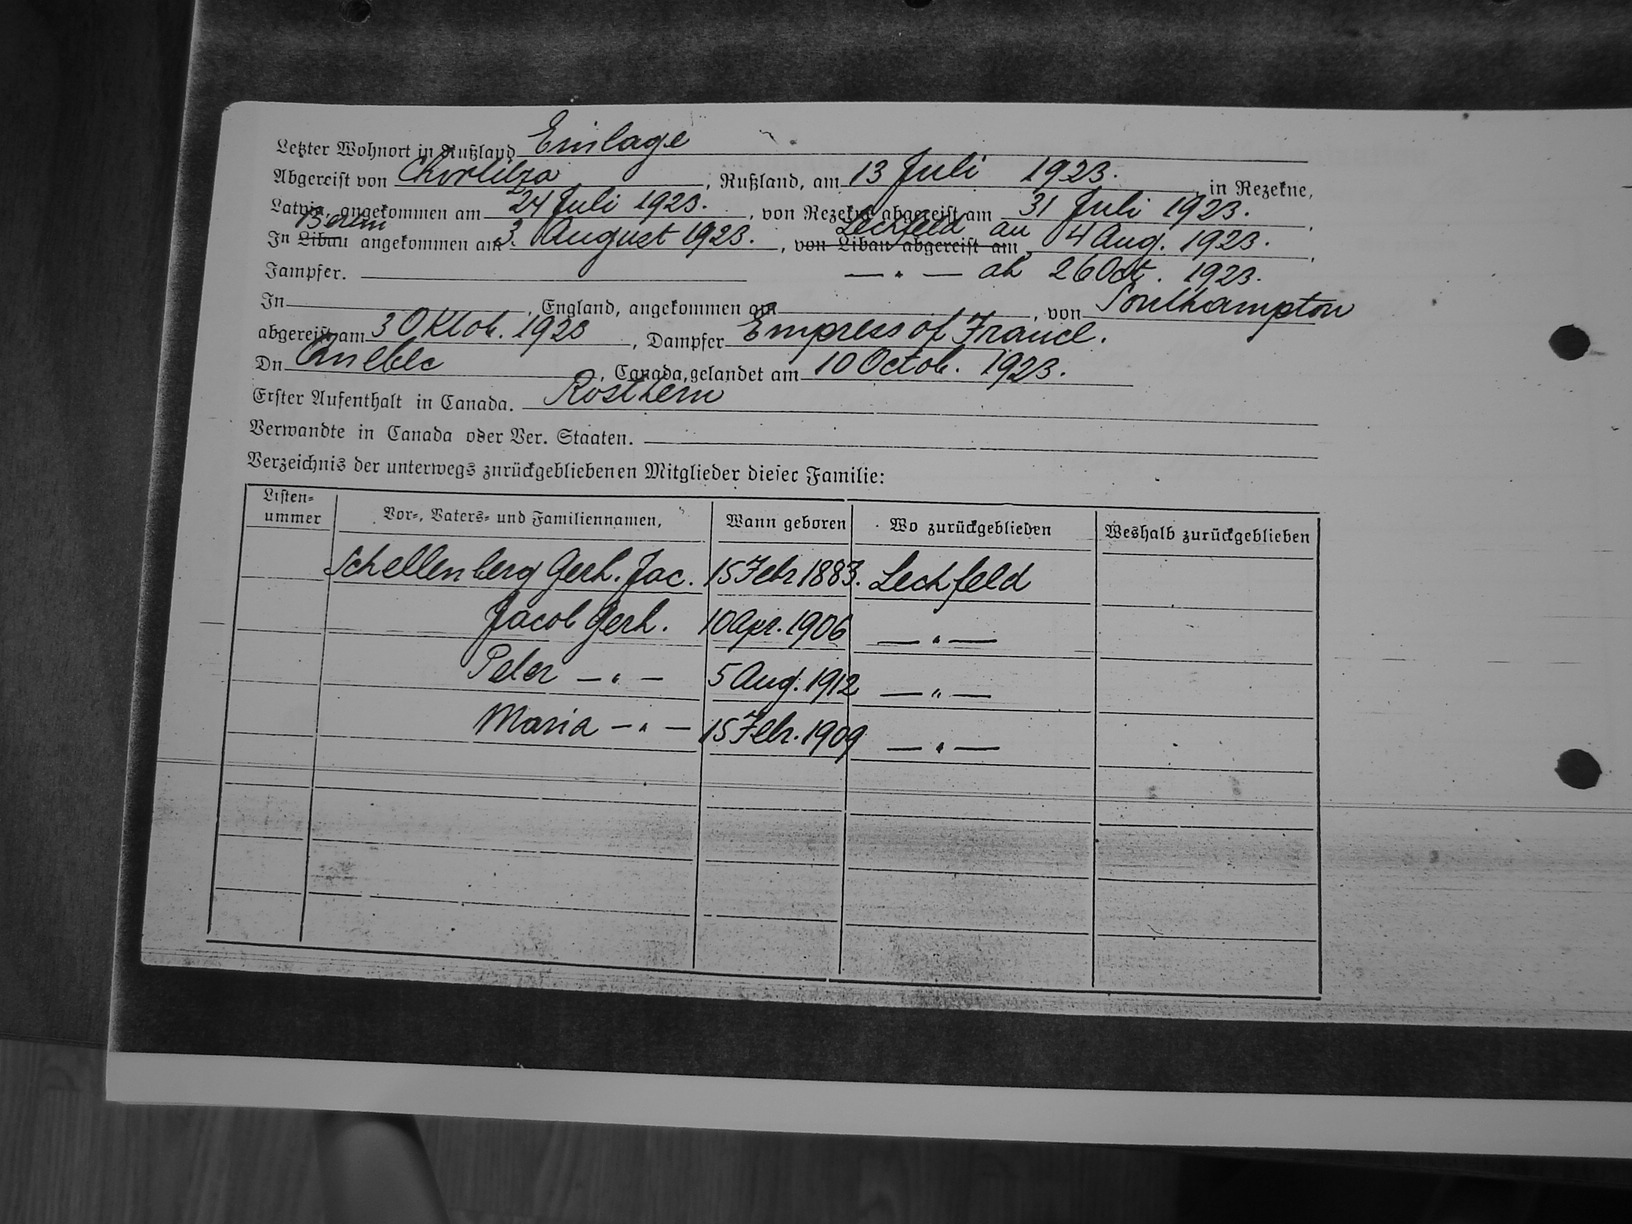 Letzter Wohnort in Rußland Einlage
Abgereist von Chortitza, Rußland, am 13 Juli 1923. in Rezekne,
Latvia, angekommen am 24 Juli 1923., von Rezekne abgereist am 31 Juli 1923.
Lechfeld an
In Libau angekommen am 3. August 1923., von Libau abgereist am 4 Aug. 1923.,
Jampfer. — " — ab 26 Oct. 1923.
In , England, angekommen am , von Southampton
abgereist am 3 Oktob. 1923, Dampfer Empress of France.
Dn Quebec, Canada, gelandet am 10 Octob. 1923.
Erster Aufenthalt in Canada. Rosthern
Verwandte in Canada oder Ver. Staaten.
Verzeichnis der unterwegs zurückgebliebenen Mitglieder dieser Familie:
Listen-ummer Vor-, Vaters- und Familiennamen, Wann geboren Wo zurückgeblieben Weshalb zurückgeblieben
Schellenberg Gerh. Jac. 15 Febr 1883. Lechfeld
Jacob Gerh. 10 Apr. 1906 — " —
Peter — " — 5 Aug. 1912 — " —
Maria — " — 15 Febr. 1909 — " —